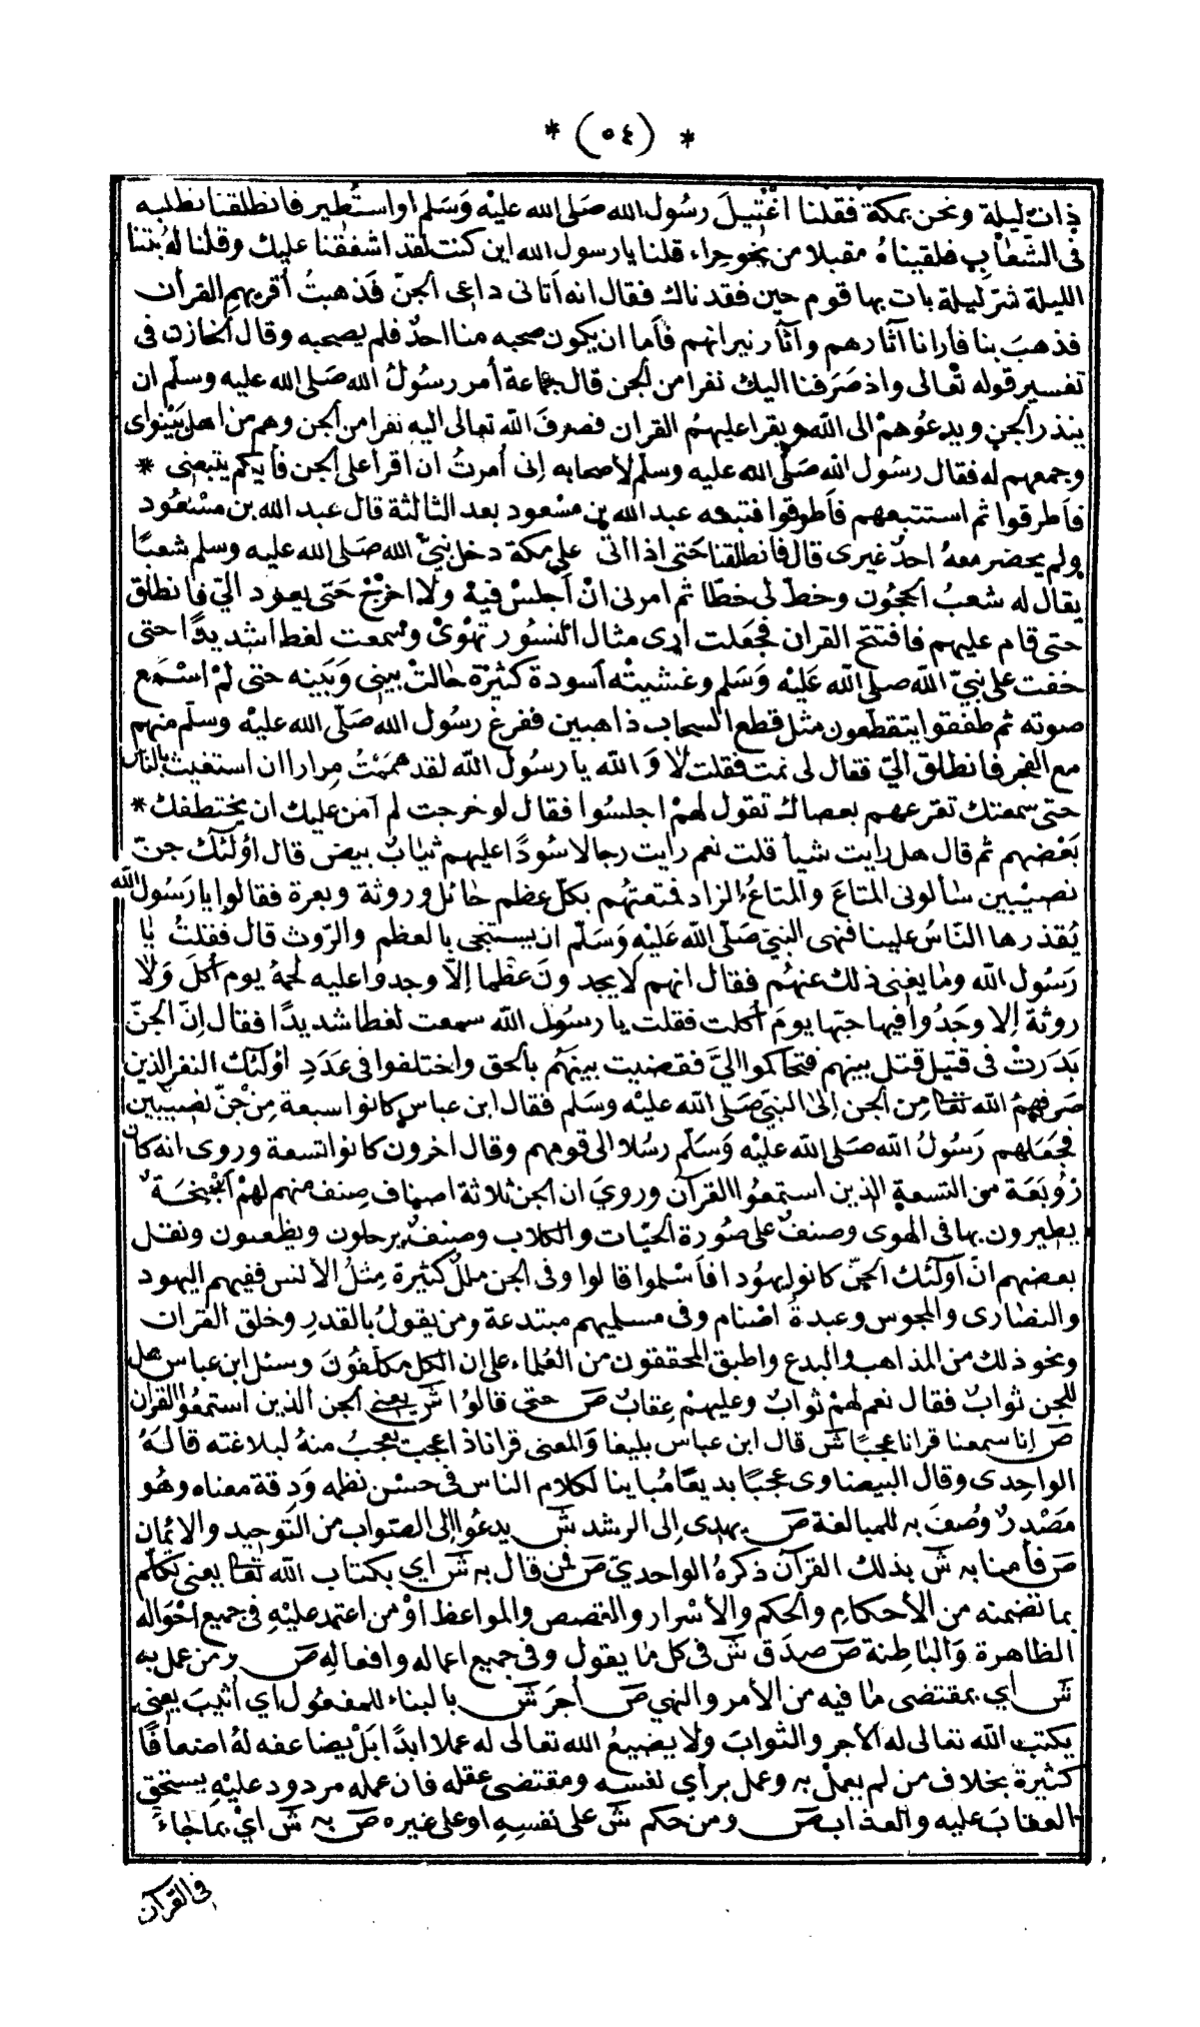 * (٥٤) *
ذات ليلة ونحن بمكة فقلنا اغتيل رسول الله صلى الله عليه وسلم او استطير فانطلقنا نطلبه
في الشعاب فلقيناه مقبلا من نحو حراء قلنا يا رسول الله اين كنت لقد اشفقنا عليك وقلنا له بتنا
الليلة شر ليلة بات بها قوم حين فقدناك فقال انه اتانى داعى الجن فذهبت أقريهم القرأن
فذهب بنا فأرانا آثارهم وآثار نيرانهم فأما ان يكون صحبه منا احد فلم يصحبه وقال الخازن فى
تفسير قوله تعالى واذ صرفنا اليك نفرا من الجن قال جماعة أمر رسول الله صلى الله عليه وسلم ان
ينذر الجن ويدعوهم الى الله ويقرا عليهم القران فصرف الله تعالى اليه نفرا من الجن وهم من اهل نينواى
وجمعهم له فقال رسول الله صلى الله عليه وسلم لاصحابه إنى أمرت ان اقرا على الجن فأيكم يتبعنى *
فاطرقوا ثم استتبعهم فأطرقوا فتبعه عبد الله بن مسعود بعد الثالثة قال عبد الله بن مسعود
ولم يحضر معه احد غيرى قال فانطلقنا حتى اذا اتى على مكة دخل نبي الله صلى الله عليه وسلم شعبا
يقال له شعب الحجون وخط لى خطا ثم امرنى ان أجلس فيه ولا اخرج حتى يعود الي فانطلق
حتى قام عليهم فافتتح القران فجعلت ارى مثال النسور تهوى وسمعت لغطا شديدا حتى
خفت على نبي الله صلى الله عليه وسلم وغشيته أسودة كثيرة حالت بينى وبينه حتى لم اسمع
صوته ثم طفقوا يتقطعون مثل قطع السحاب ذاهبين ففرغ رسول الله صلى الله عليه وسلم منهم
مع الفجر فانطلق الي فقال لى نمت فقلت لا والله يا رسول الله لقد هممت مرارا ان استغيث بالناس
حتى سمعتك تقرعهم بعصاك تقول لهم اجلسوا فقال لو خرجت لم آمن عليك ان يختطفك *
بعضهم ثم قال هل رايت شيأ قلت نعم رايت رجالا سودا عليهم ثياب بيض قال أولئك جن
نصيبين سألونى المتاع والمتاع الزاد فمتعتهم بكل عظم حائل وروثة وبعرة فقالوا يا رسول الله
يقذرها الناس علينا فنهى النبي صلى الله عليه وسلم ان يستنجى بالعظم والروث قال فقلت يا
رسول الله وما يغنى ذلك عنهم فقال انهم لا يجدون عظما إلا وجدوا عليه لحمة يوم أكل ولا
روثة إلا وجدوا فيها حبها يوم أكلت فقلت يا رسول الله سمعت لغطا شديدا فقال إن الجن
بدرت فى قتيل قتل بينهم فتحاكموا الي فقضيت بينهم بالحق واختلفوا فى عدد اولئك النفر الذين
صرفهم الله تعا من الجن إلى النبي صلى الله عليه وسلم فقال ابن عباس كانوا سبعة من جن نصيبين
فجعلهم رسول الله صلى الله عليه وسلم رسلا الى قومهم وقال اخرون كانوا تسعة وروى انه كان
زوبعة من التسعة الذين استمعوا القرآن وروي ان الجن ثلاثة اصناف صنف منهم لهم اجنحة
يطيرون بها فى الهوى وصنف على صورة الحيات والكلاب وصنف يرحلون ويظعنون ونقل
بعضهم ان أولئك الجن كانوا يهودا فأسلموا قالوا وفى الجن ملل كثيرة مثل الأنس ففيهم اليهود
والنصارى والمجوس وعبدة اصنام وفى مسلميهم مبتدعة ومن يقول بالقدر وخلق القران
ونحو ذلك من المذاهب والبدع واطبق المحققون من العلماء على ان الكل مكلفون وسئل ابن عباس هل
للجن ثواب فقال نعم لهم ثواب وعليهم عقاب ص حتى قالوا ش يعنى الجن الذين استمعوا القران
ص إنا سمعنا قرانا عجبا ش قال ابن عباس بليغا والمعنى قرانا ذا عجب يعجب منه لبلاغته قاله
الواحدى وقال البيضاوى عجبا بديعا مباينا لكلام الناس فى حسن نظمه ودقة معناه وهو
مصدر وصف به للمبالغة ص يهدى إلى الرشد ش يدعوا إلى الصواب من التوحيد والائمان
ص فأمنا به ش بذلك القرآن ذكره الواحدي ص فمن قال به ش اي بكتاب الله تعا يعنى تكلم
بما تضمنه من الأحكام والحكم والأسرار والقصص والمواعظ او من اعتمد عليه فى جميع احواله
الظاهرة والباطنة ص صدق ش فى كل ما يقول وفى جميع اعماله وافعاله ص ومن عمل به
ش اي بمقتضى ما فيه من الأمر والنهي ص أجر ش بالبناء للمفعول اي اثيب يعنى
يكتب الله تعالى له الأجر والثواب ولا يضيع الله تعالى له عملا ابدا بل يضاعفه له اضعافا
كثيرة بخلاف من لم يعمل به وعمل برأي نفسه ومقتضى عقله فان عمله مردود عليه يستحق
العقاب عليه والعذاب ص ومن حكم ش على نفسه او على غيره ص به ش اي بما جاء
فى القرآن